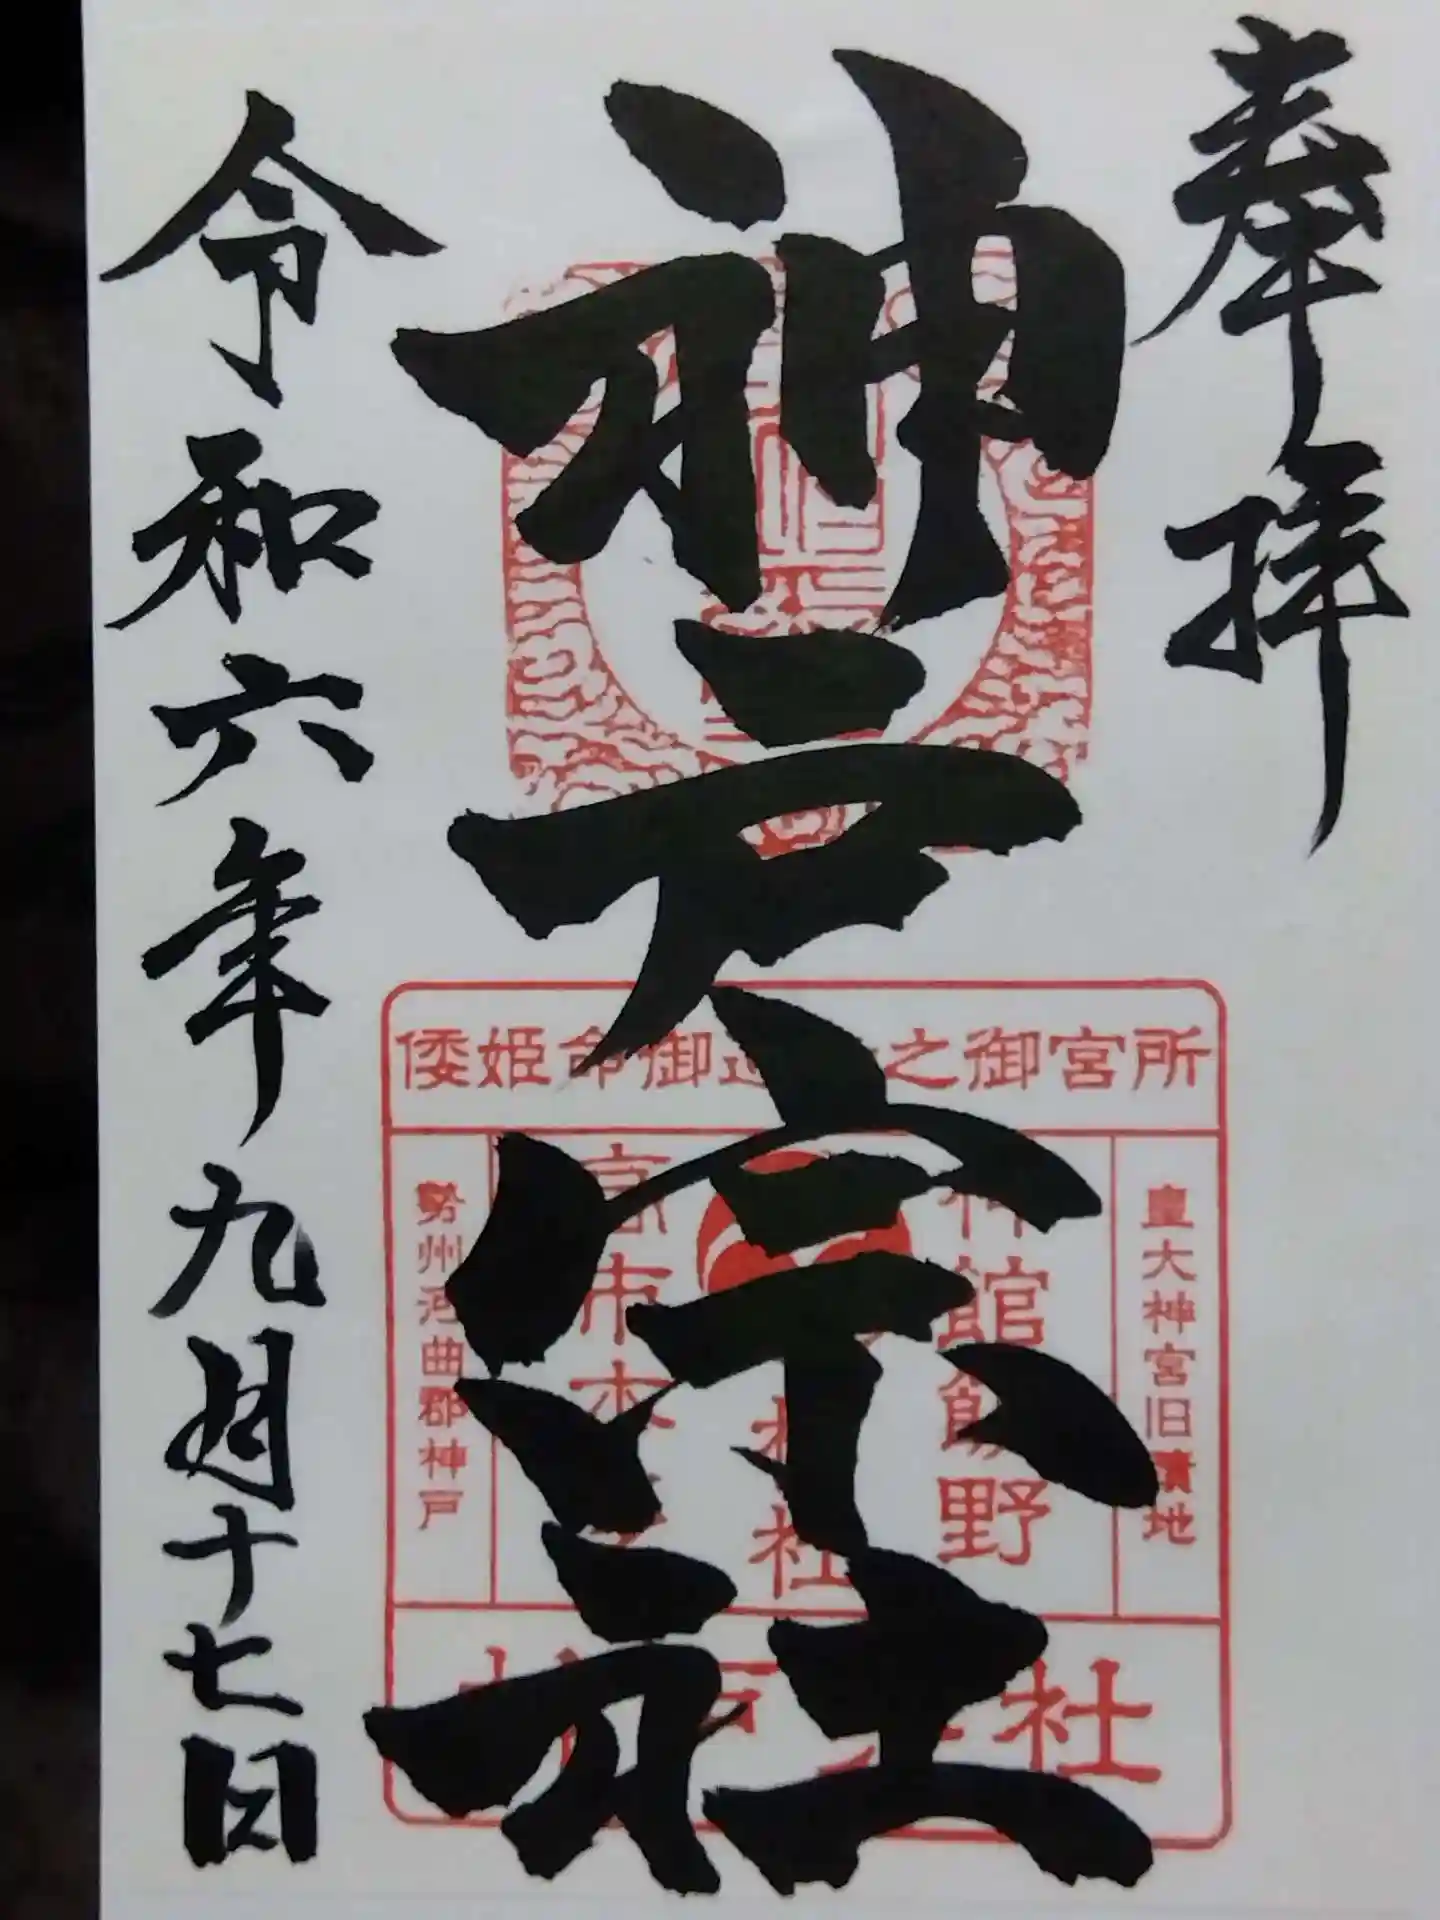 奉拝
神戸宗社
令和六年九月十七日
倭姫命御之御宮所
皇大神宮旧蹟地
神館飯野
高市本
社
勢州河曲郡神戸
社